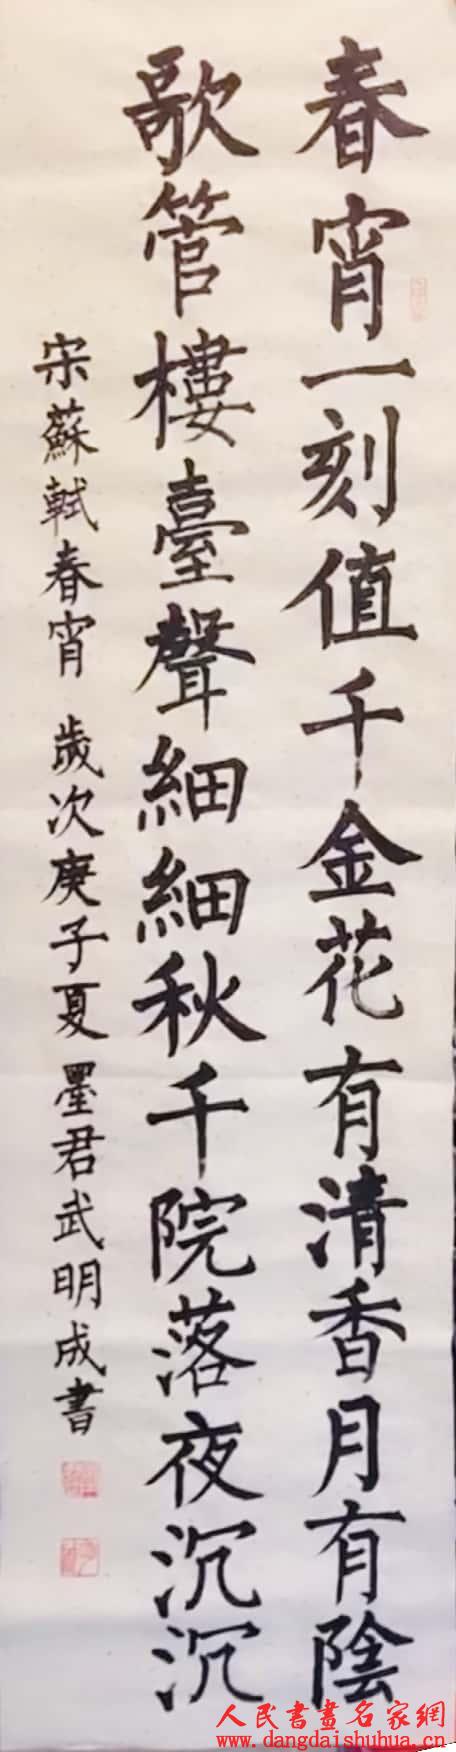 春宵一刻值千金花有清香月有陰
歌管樓臺聲細細秋千院落夜沉沉
宋蘇軾春宵 歲次庚子夏墨君武明成書
人民書畫名家網
www.dangdaishuhua.cn